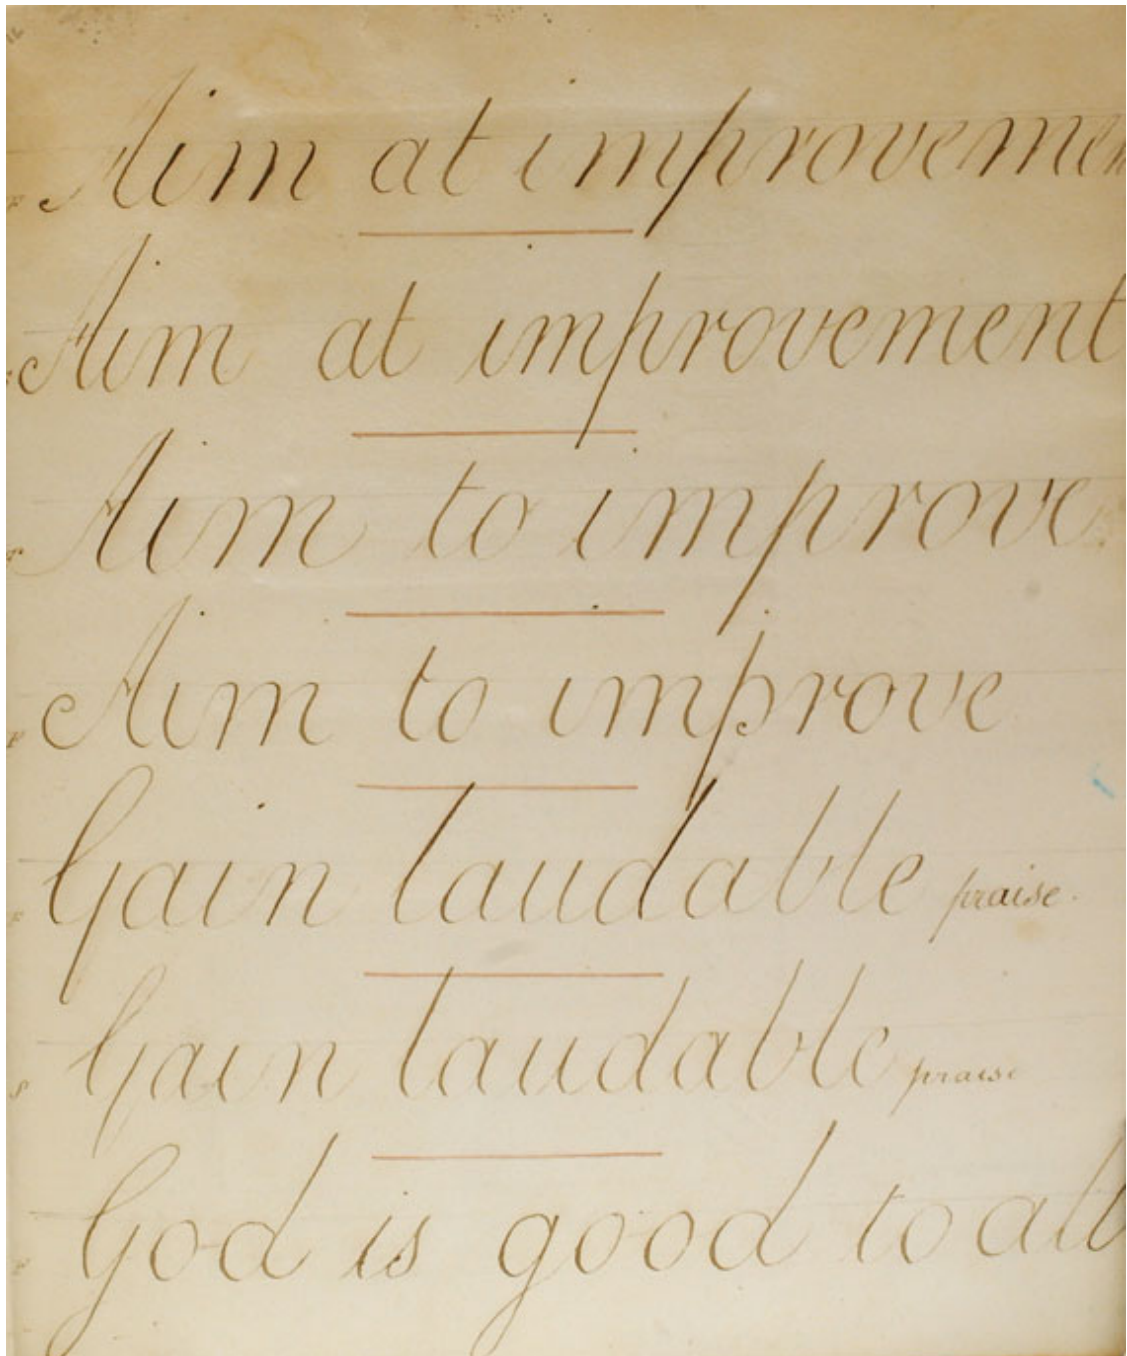 Aim at improvemen
Aim at improvement
Aim to improve.
Aim to improve
Gain laudable praise.
Gain laudable praise
God is good to all